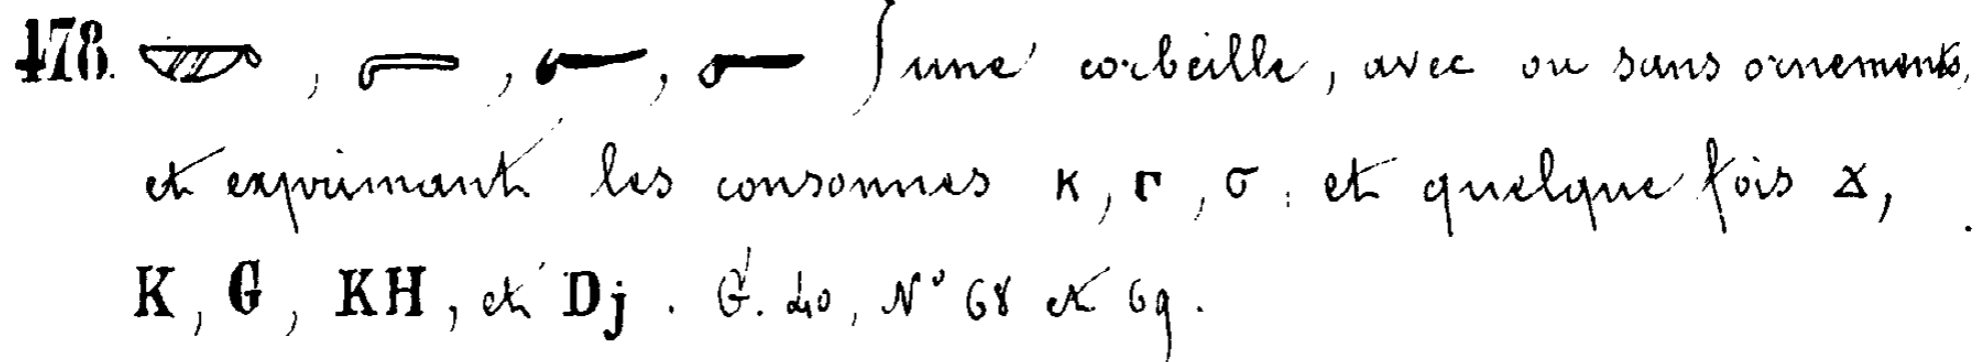 478. 𓎡, , , } une corbeille, avec ou sans ornements,
et exprimant les consonnes ⲕ, ⲅ, ϭ, et quelque fois ϫ,
K, G, KH, et Dj. G. 40, N° 68 et 69.